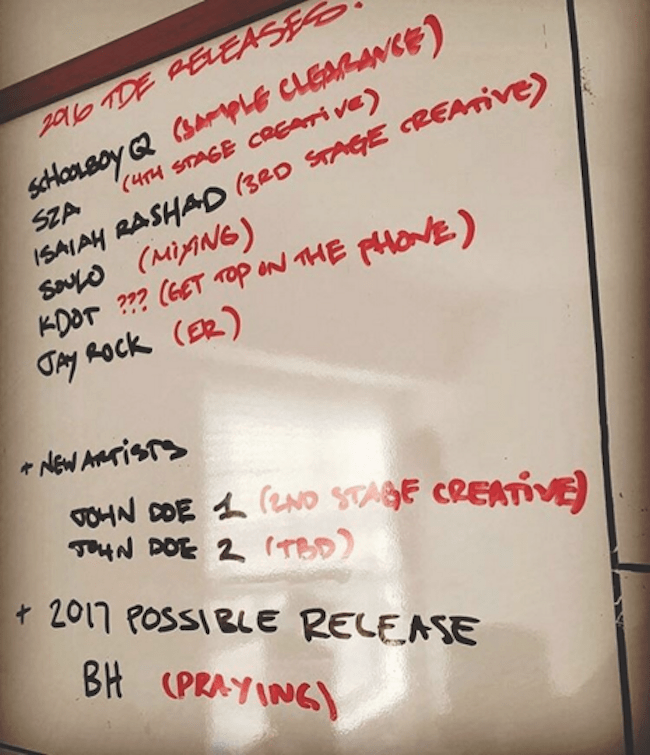 2016 TDE RELEASES:
SCHOOLBOY Q (SAMPLE CLEARANCE)
SZA (4TH STAGE CREATIVE)
ISAIAH RASHAD (3RD STAGE CREATIVE)
SOULO (MIXING)
KDOT ??? (GET TOP ON THE PHONE)
JAY ROCK (ER)
+ NEW ARTISTS
JOHN DOE 1 (2ND STAGE CREATIVE)
JOHN DOE 2 (TBD)
+ 2017 POSSIBLE RELEASE
BH (PRAYING)